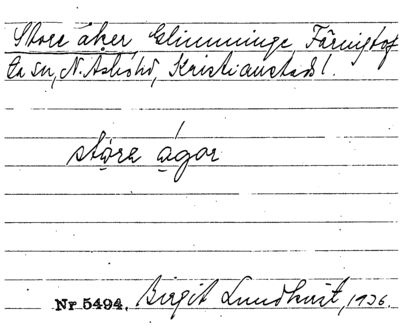 Store åker, Glimminge, Färingtof
ta sn, N. Åsbo hd, Kristianstads l.
störe ågor
Nr 5494. Birgit Lundkvist, 1936.